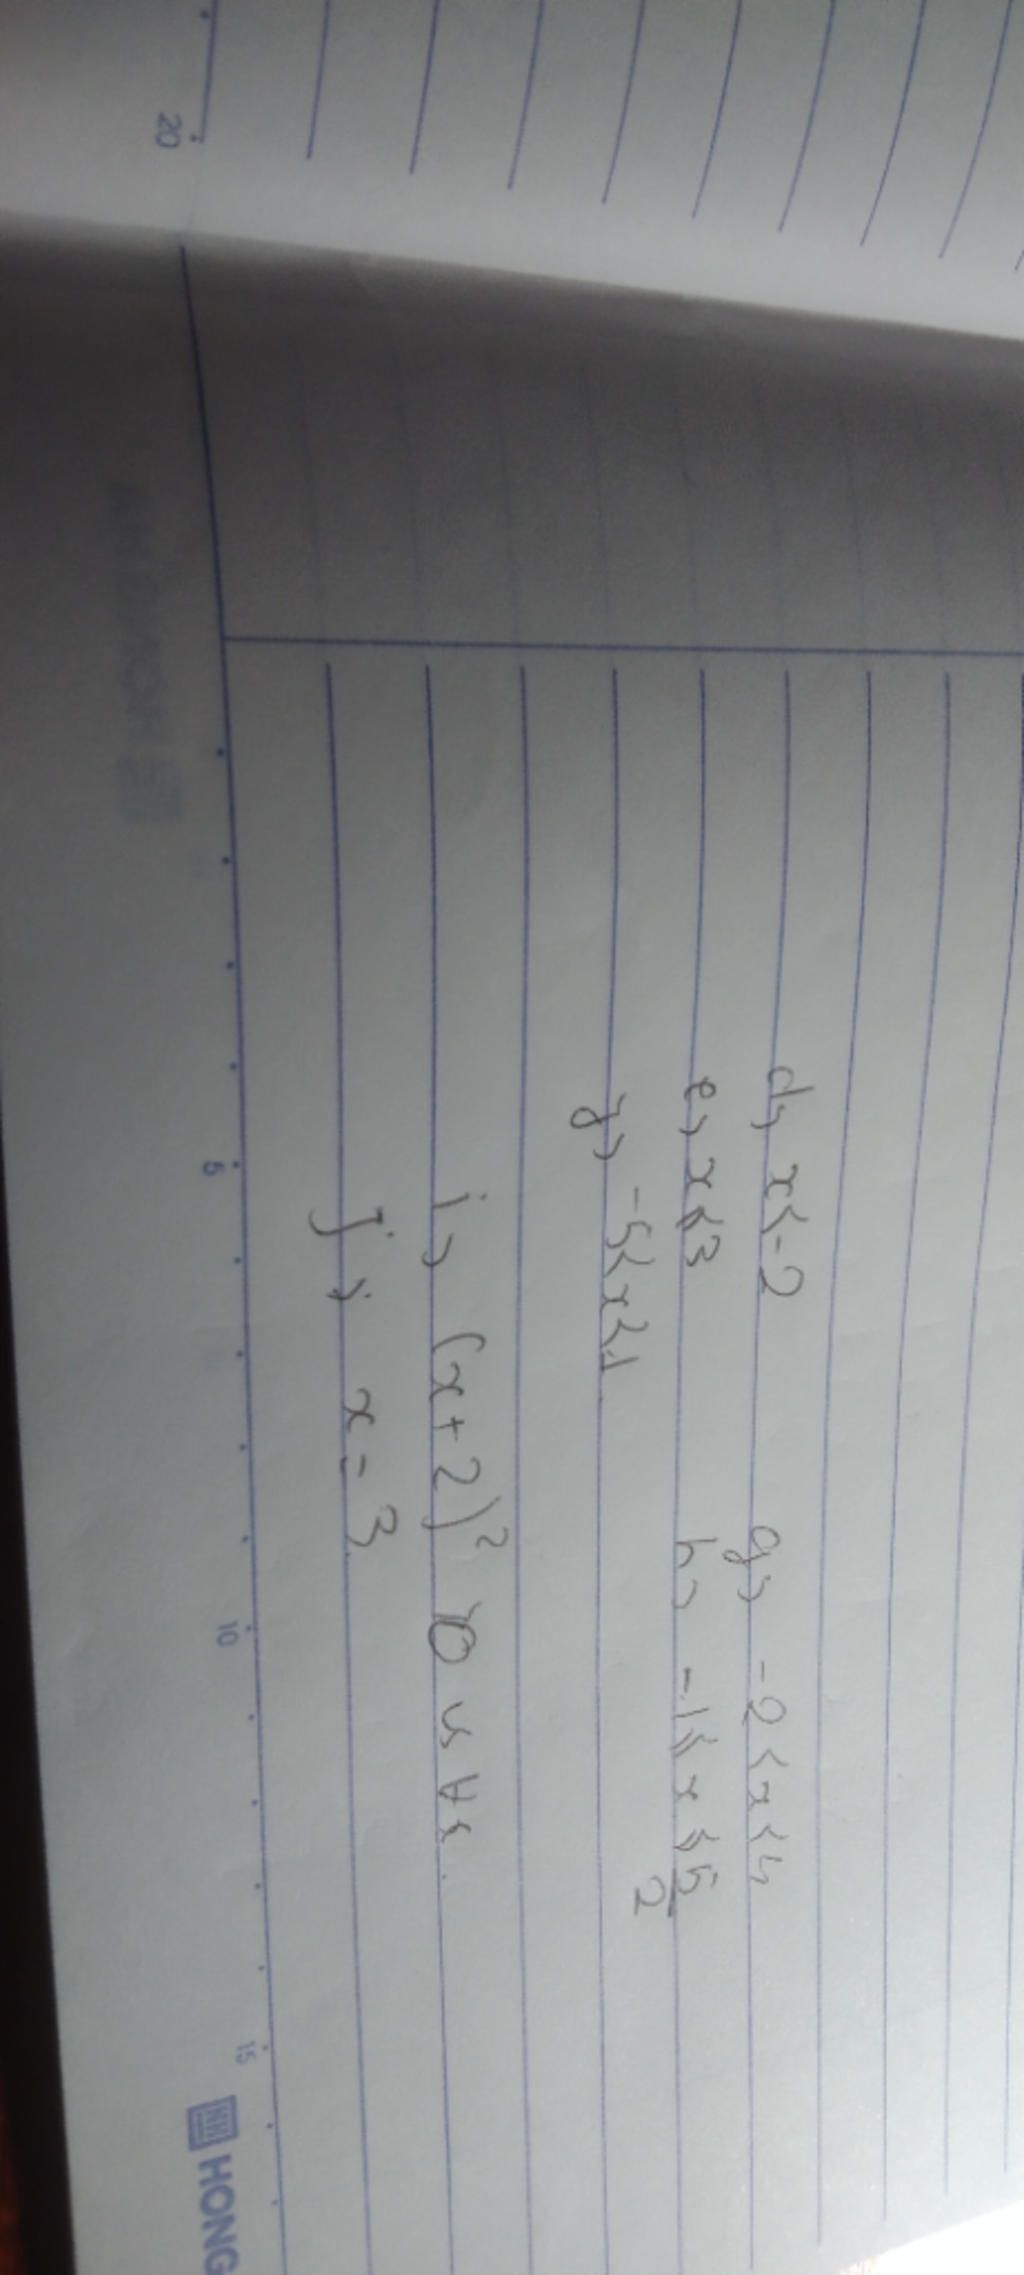 d, x<-2 g, -2<x<4
e, x≤3 h, -1≤x≤5/2
f, -5<x<1
i, (x+2)² ≥0 vs ∀x.
j, x=3
20
5 10 15
HONG